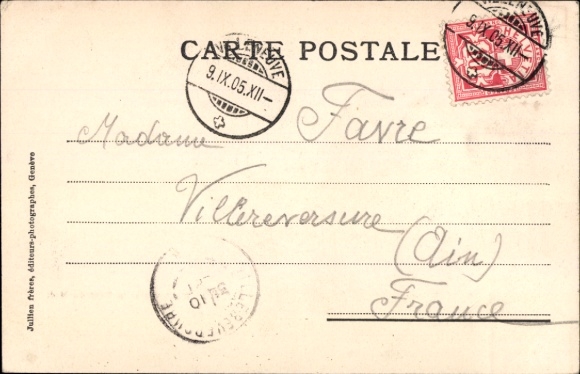 CARTE POSTALE
VILLENEUVE
9.IX.05.XII–
VILLENEUVE
9.IX.05.XII–
Madame Favre
Villereversure
(Ain)
France
VILLEREVERSURE
10
Jullien frères, éditeurs-photographes, Genève